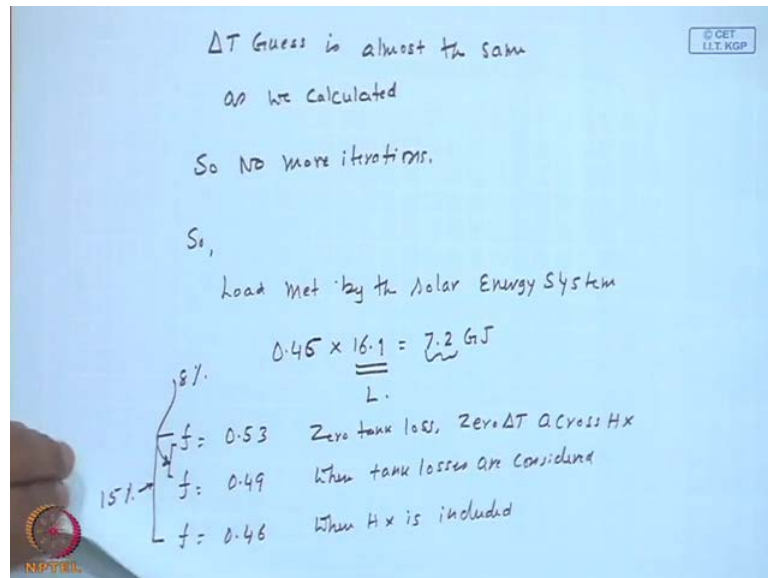 ΔT Guess is almost the same
© CET
I.I.T. KGP
as we calculated
So No more iterations.
So,
Load met by the Solar Energy System
0.45 × 16.1 = 7.2 GJ
L.
8%.
f = 0.53 Zero tank loss, Zero ΔT across Hx
f = 0.49 When tank losses are considered
15%
f = 0.46 When Hx is included
NPTEL